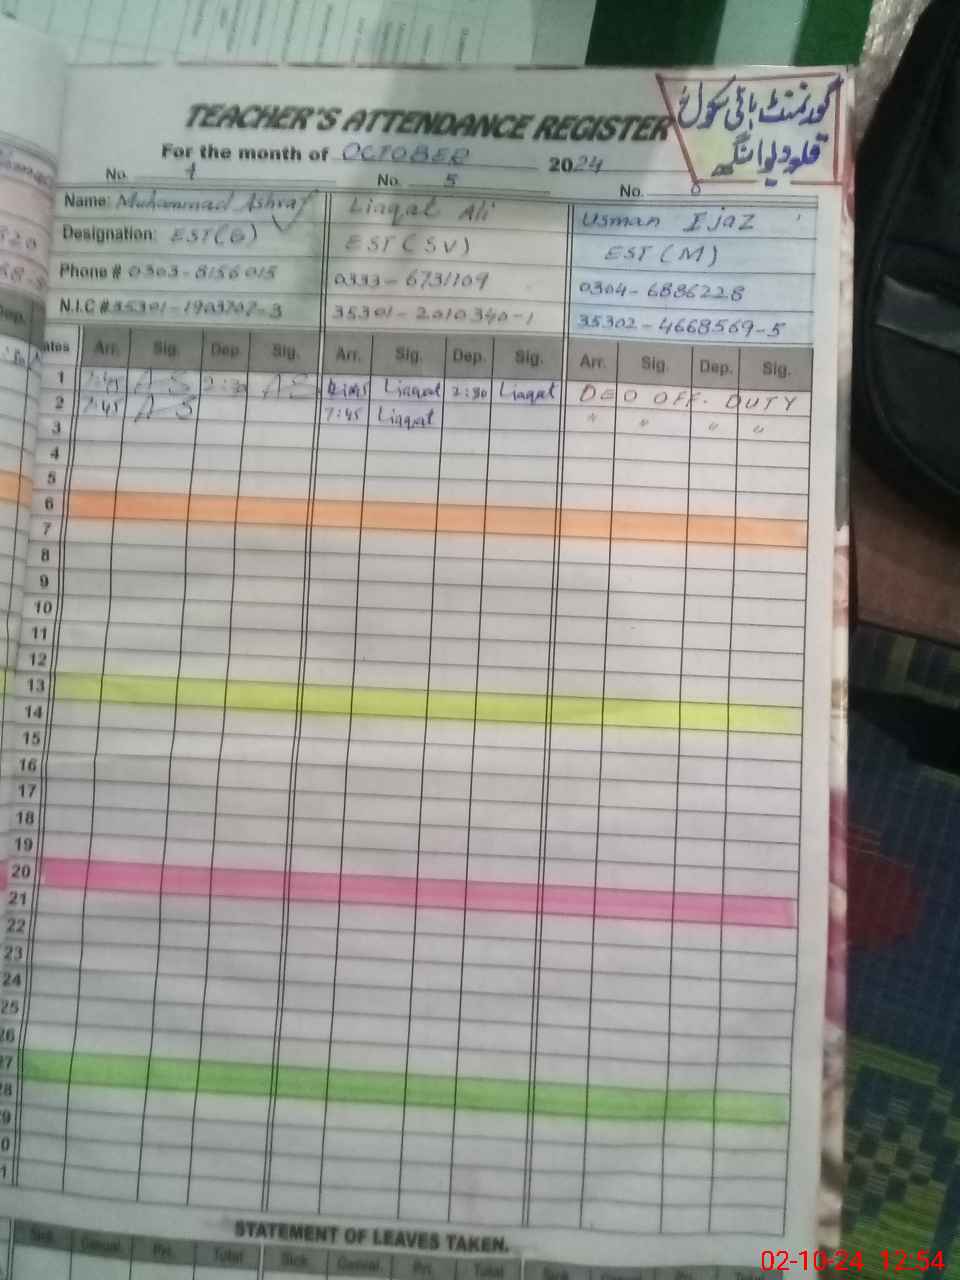 TEACHER'S ATTENDANCE REGISTER
گورنمنٹ ہائی سکول
قلعہ دیوا سنگھ
For the month of OCTOBER 2024
No. No. 5 No.
Name: Muhammad Ashraf Liaqat Ali Usman Ijaz
Designation: EST(G) EST(SV) EST(M)
Phone # 0303-8156015 0333-6731109 0304-6886228
N.I.C # 35301-1903707-3 35301-2010340-1 35302-4668569-5
Arr. Sig. Dep. Sig. Arr. Sig. Dep. Sig. Arr. Sig. Dep. Sig.
1 7:45 AS 2:30 AS Liaqat 2:30 Liaqat DEO OFF. DUTY
2 7:45 AS 7:45 Liaqat " " " "
3
4
5
6
7
8
9
10
11
12
13
14
15
16
17
18
19
20
21
22
23
24
25
26
27
28
STATEMENT OF LEAVES TAKEN.
Sick. Casual. Pri. Total Sick. Casual. Pri. Total
02-10-24 12:54